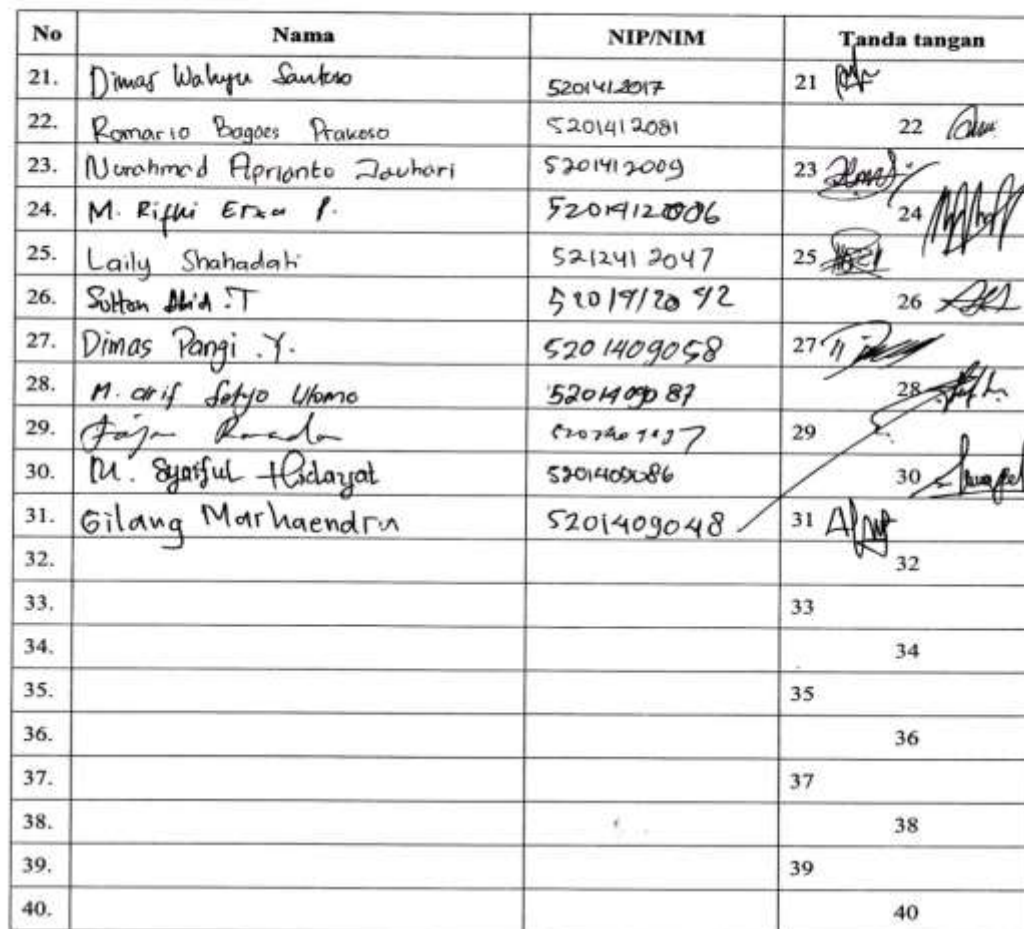 No Nama NIP/NIM Tanda tangan
21. Dimas Wahyu Santoso 5201412017 21
22. Romario Bagoes Prakoso 5201412081 22
23. Nurahmad Aprianto Jauhari 5201412009 23
24. M. Rifki Erza P. 5201412006 24
25. Laily Shahadati 5212412047 25
26. Sultan Abid .T 5201412042 26
27. Dimas Pangi .Y. 5201409058 27
28. M. arif Setyo Utomo 5201409087 28
29. Fajar 29
30. M. Syaiful Hidayat 5201409086 30
31. Gilang Marhaendra 5201409048 31
32. 32
33. 33
34. 34
35. 35
36. 36
37. 37
38. 38
39. 39
40. 40